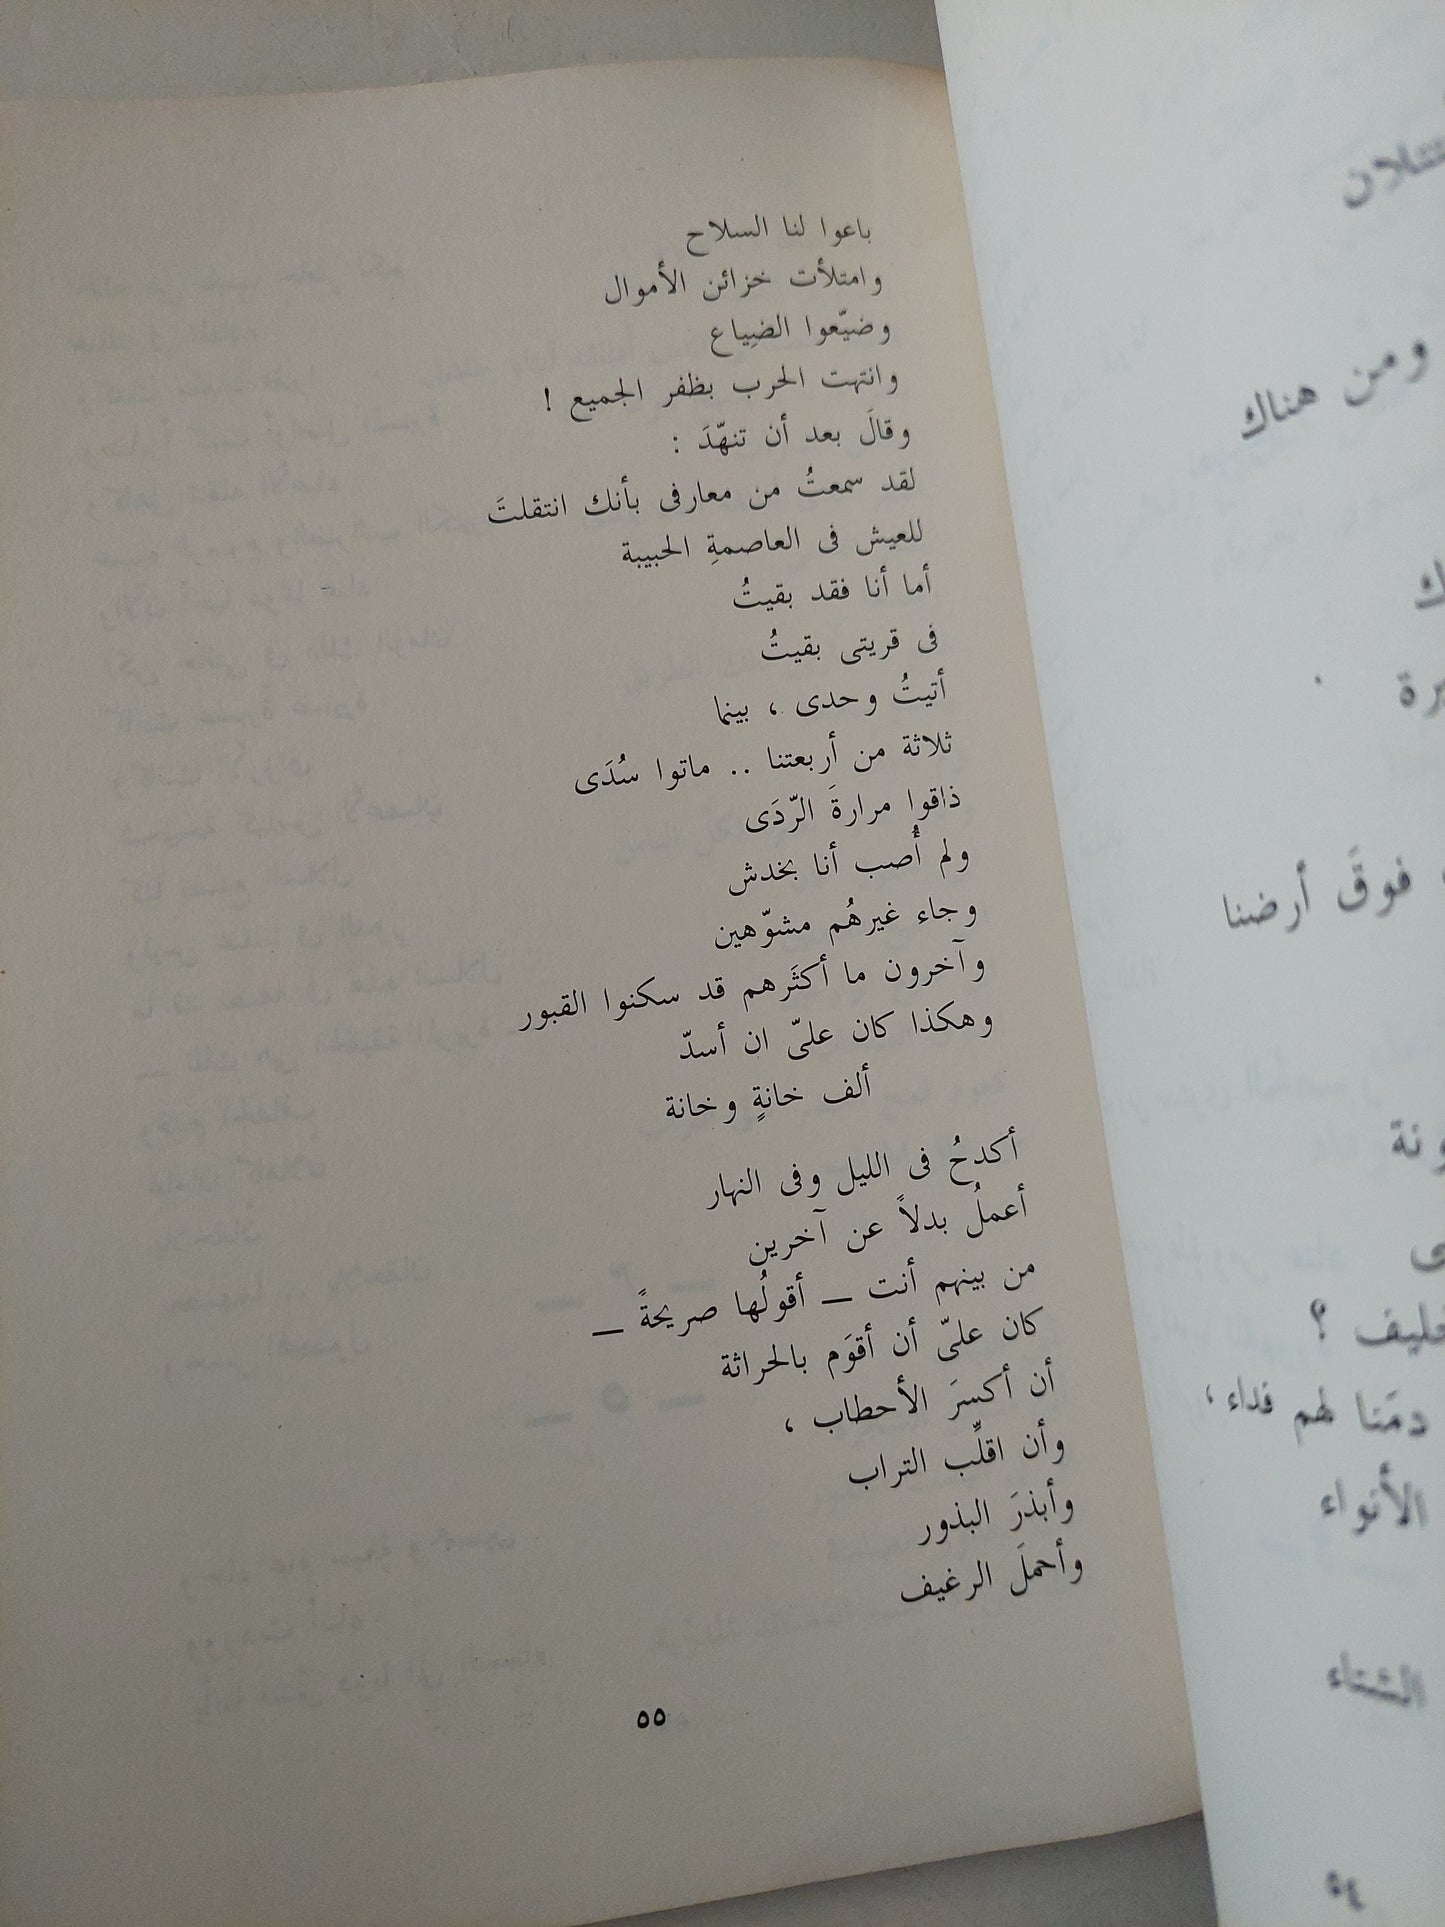 باعوا لنا السلاح
وامتلأت خزائن الأموال
وضيّعوا الضِياع
وانتهت الحرب بظفر الجميع !
وقالَ بعد أن تنهّدَ :
لقد سمعتُ من معارفى بأنك انتقلتَ
للعيش فى العاصمةِ الحبيبة
أما أنا فقد بقيتُ
فى قريتى بقيتُ
أتيتُ وحدى ، بينما
ثلاثة من أربعتنا .. ماتوا سُدَى
ذاقوا مرارةَ الرّدَى
ولم أُصب أنا بخدش
وجاء غيرهُم مشوّهين
وآخرون ما أكثَرهم قد سكنوا القبور
وهكذا كان علىّ ان أسدّ
ألف خانةٍ وخانة
أكدحُ فى الليل وفى النهار
أعملُ بدلاً عن آخرين
من بينهم أنت — أقولُها صريحةً —
كان علىّ أن أقوَم بالحراثة
أن أكسرَ الأحطاب ،
وأن اقلِّب التراب
وأبذرَ البذور
وأحملَ الرغيف
٥٥
ومن هناك
فوقَ أرضنا
؟
دمَنا لهم فداء ،
الأنواء
الشتاء